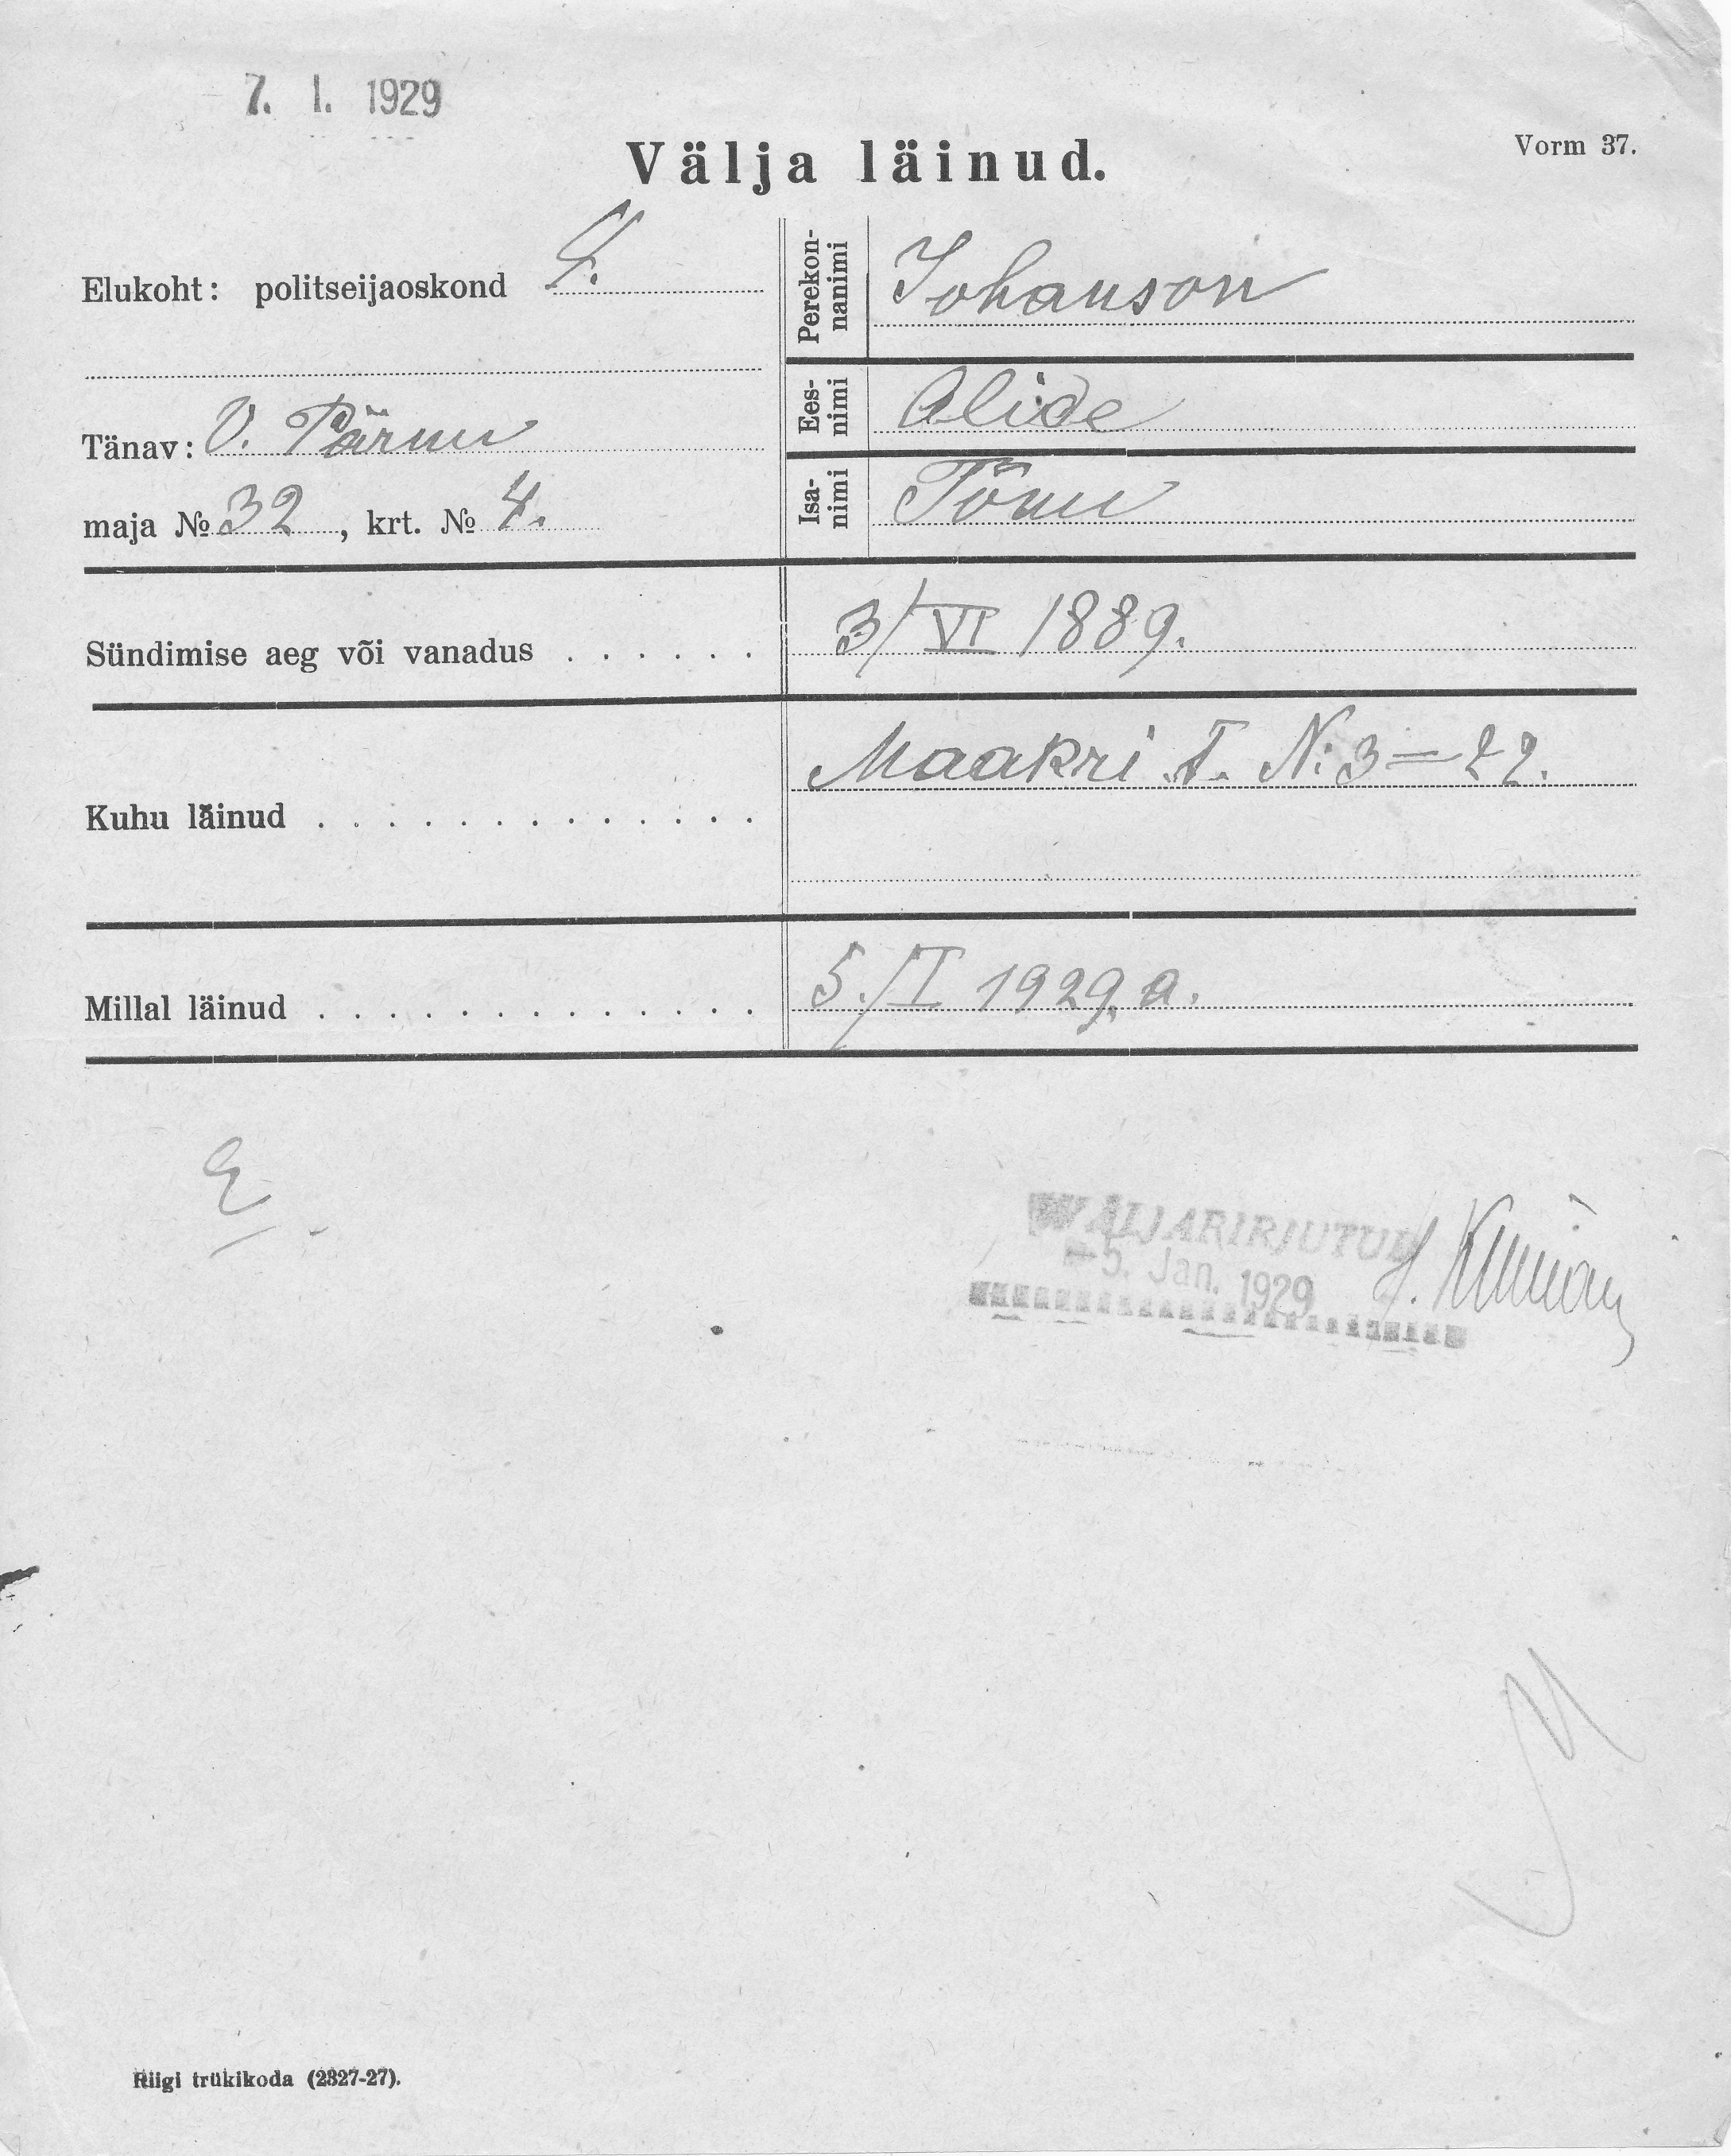 7. I. 1929
Välja läinud.
Vorm 37.
Elukoht: politseijaoskond
Tänav: V. Pärnu
maja № 32, krt. № 4.
Perekonnanimi Johanson
Eesnimi Alide
Isanimi Tõnu
Sündimise aeg või vanadus . . . . . . 3/VI 1889.
Kuhu läinud . . . . . . . . . . . . . Maakri T. N: 3=22.
Millal läinud . . . . . . . . . . . . . 5./I 1929. a.
WÄLJAKIRJUTUD
-5. Jan. 1929
Riigi trükikoda (2327-27).